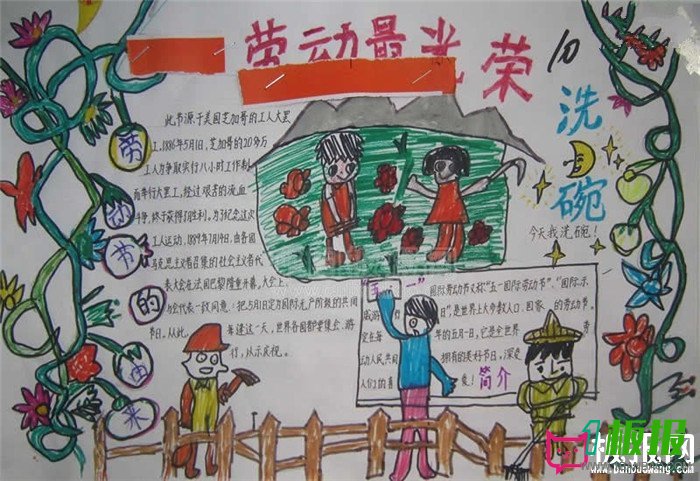 劳动最光荣
10
劳动节的由来
此节源于美国芝加哥的工人大罢
工,1886年5月1日,芝加哥的20多万
工人为争取实行八小时工作制
而举行大罢工,经过艰苦的流血
斗争,终于获得了胜利,为了纪念这次
工人运动,1889年7月14日,由各国
马克思主义者召集的社会主义者代
表大会在法国巴黎隆重开幕,大会上,
与会代表一致同意:把5月1日定为国际无产阶级的共同
节日。从此,每逢这一天,世界各国都要集会、游
行,以示庆祝。
洗碗
今天我洗碗!
国际劳动节又称“五一国际劳动节”、“国际示
日”,是世界上大多数人口、国家的劳动节。
定在每年的五月一日,它是全世界劳
动人民共同拥有的美好节日,深受
人们的喜爱!
简介
板报网
www.banbaowang.com